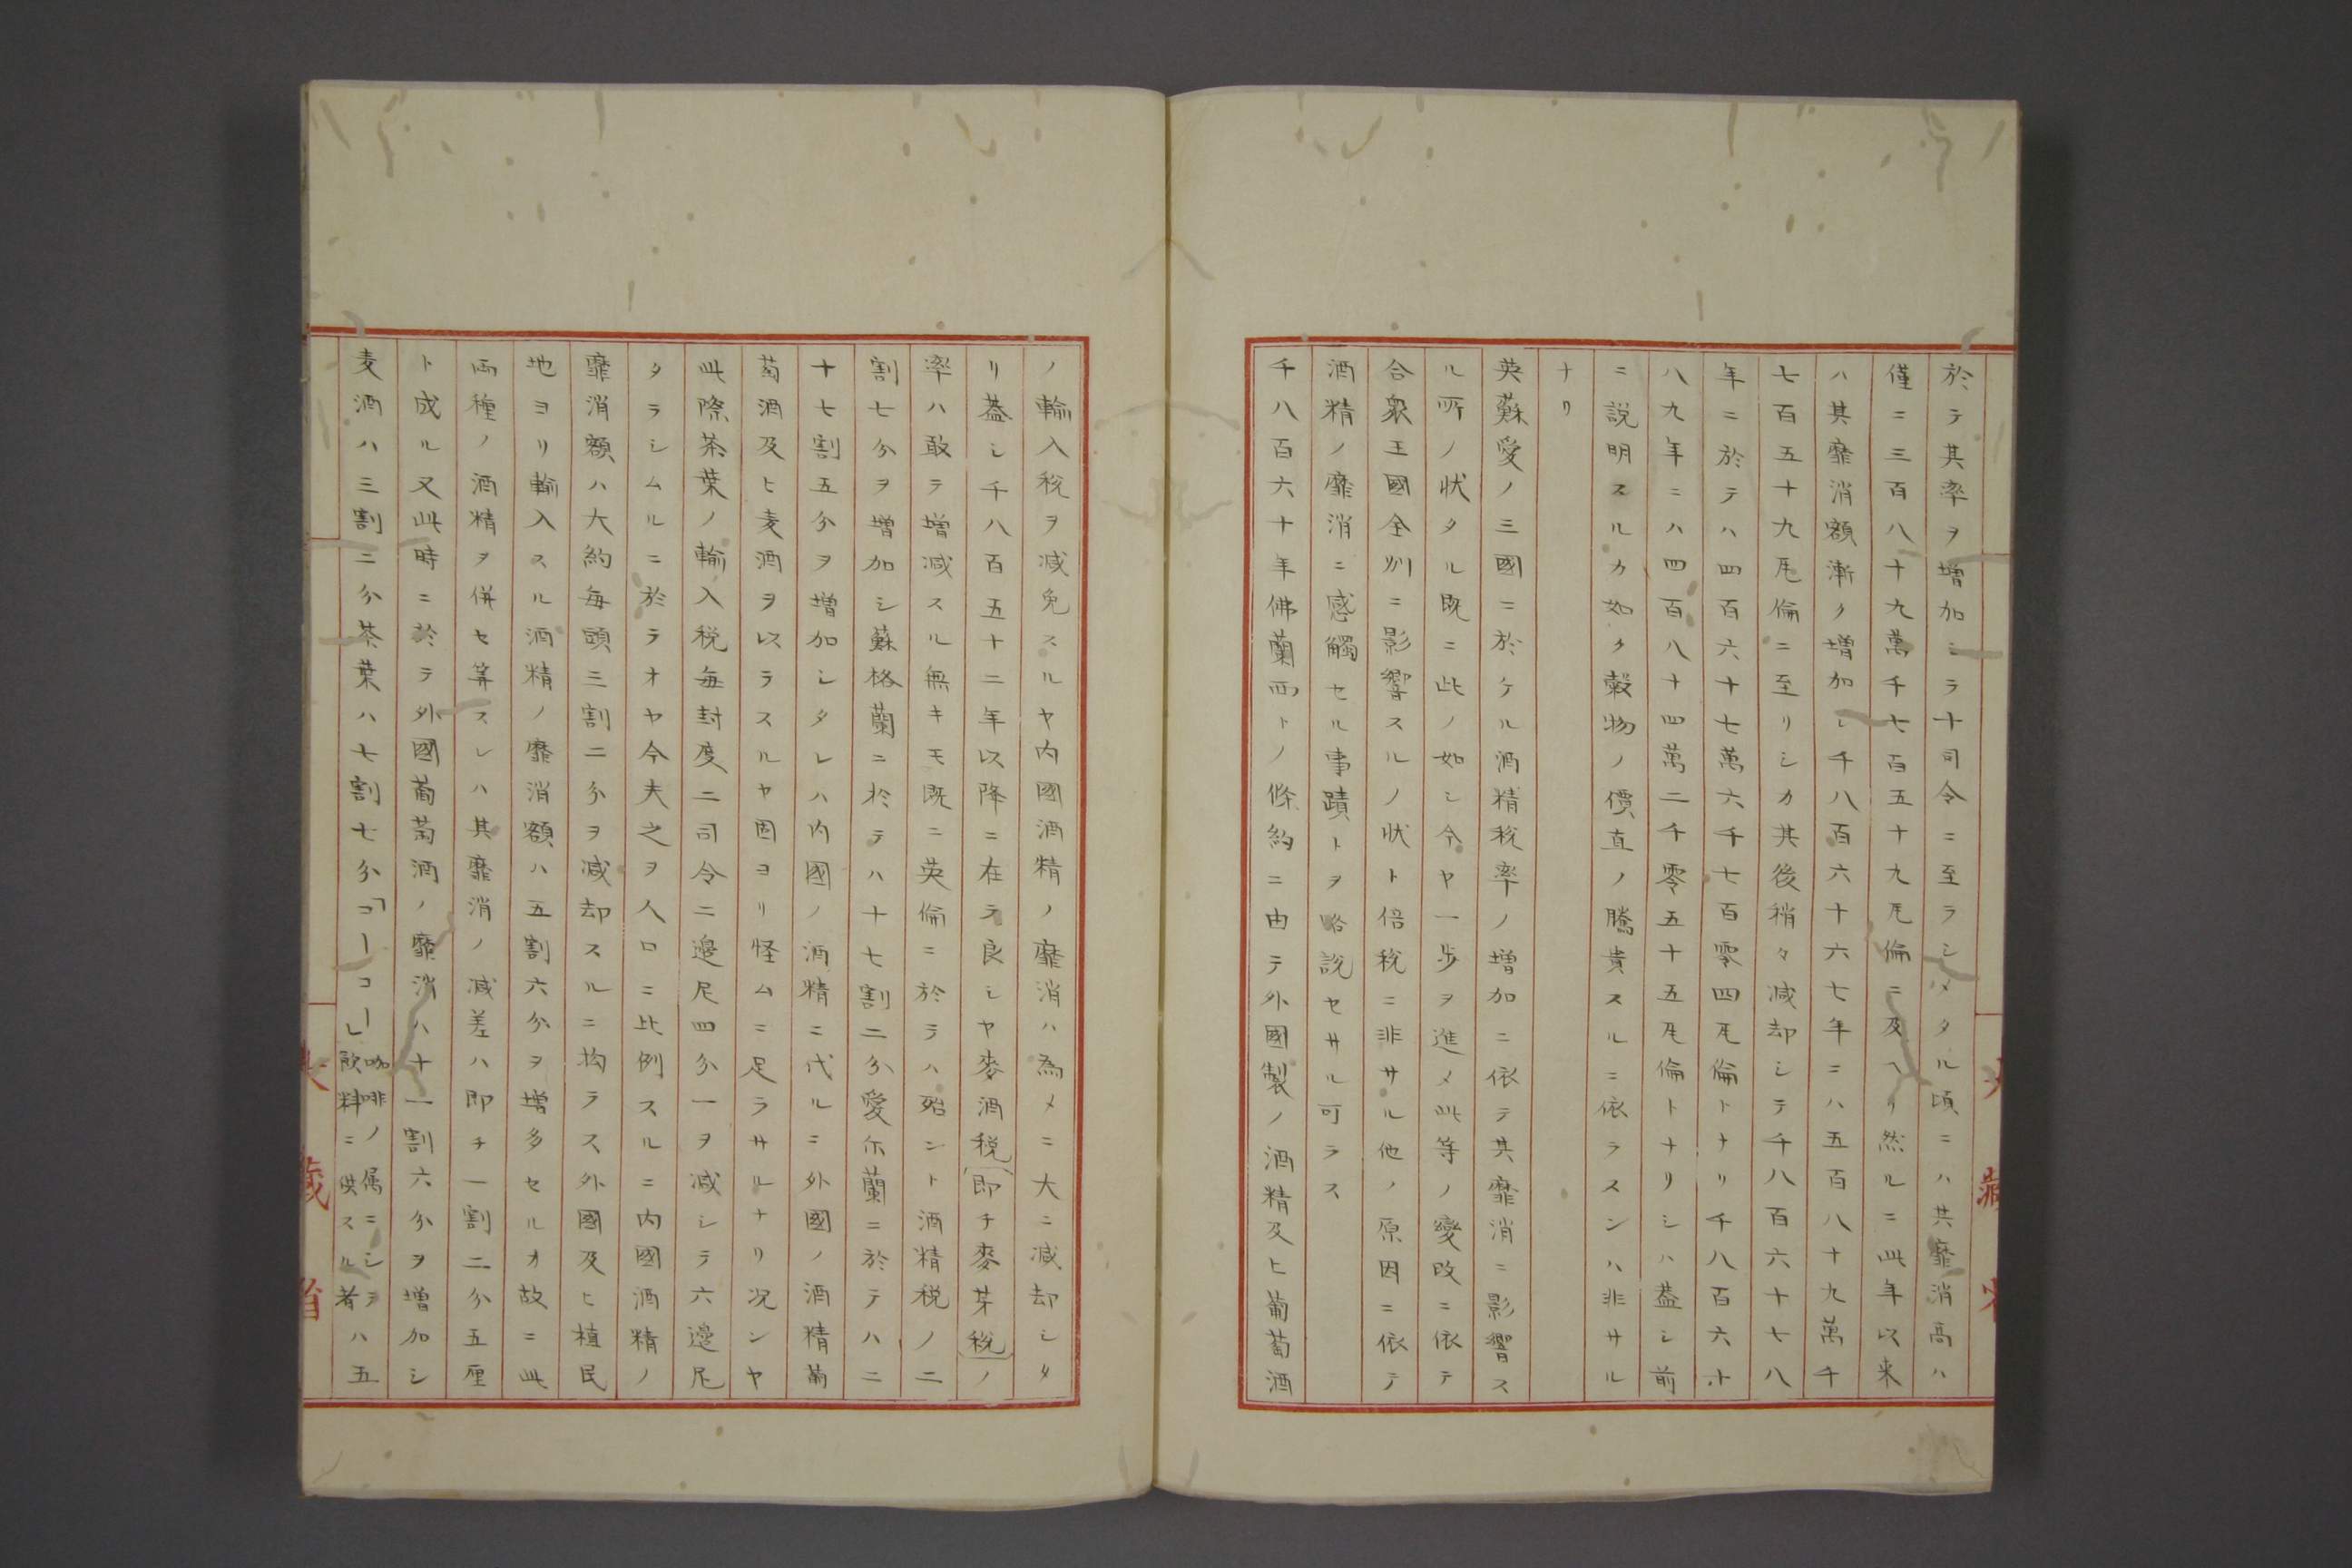 於テ其率ヲ增加シテ十司令ニ至ラシメタル頃ニハ共靡消高ハ
僅ニ三百八十九萬千七百五十九瓦倫ニ及ヘリ然ルニ此年以来
ハ其靡消額漸ク增加シ千八百六十六七年ニハ五百八十九萬千
七百五十九瓦倫ニ至リシカ其後稍々减却シテ千八百六十七八
年ニ於テハ四百六十七萬六千七百零四瓦倫トナリ千八百六十
八九年ニハ四百八十四萬二千零五十五瓦倫トナリシハ蓋シ前
ニ説明スルカ如ク穀物ノ價直ノ騰貴スルニ依ラスンハ非サル
ナリ
英蘇愛ノ三國ニ於ケル酒精税率ノ增加ニ依テ其靡消ニ影響ス
ル所ノ状タル既ニ此ノ如シ今ヤ一歩ヲ進メ此等ノ變改ニ依テ
合衆王國全州ニ影響スルノ状ト倍税ニ非サル他ノ原因ニ依テ
酒精ノ靡消ニ感觸セル事蹟トヲ略説セサル可ラス
千八百六十年佛蘭西トノ條約ニ由テ外國製ノ酒精及ヒ葡萄酒
ノ輸入税ヲ减免スルヤ内國酒精ノ靡消ハ為メニ大ニ减却シタ
リ蓋シ千八百五十二年以降ニ在テ良シヤ麥酒税(即チ麥芽税)ノ
率ハ敢テ増减スル無キモ既ニ英倫ニ於テハ殆ント酒精税ノ二
割七分ヲ增加シ蘇格蘭ニ於テハ十七割二分愛尓蘭ニ於テハ二
十七割五分ヲ增加シタレハ内國ノ酒精ニ代ルニ外國ノ酒精葡
萄酒及ヒ麦酒ヲ以テスルヤ固ヨリ怪ムニ足ラサルナリ况ンヤ
此際茶葉ノ輸入税毎封度二司令二邉尼四分一ヲ减シテ六邉尼
タラシムルニ於テオヤ今夫之ヲ人口ニ比例スルニ内國酒精ノ
靡消額ハ大約毎頭三割二分ヲ减却スルニ拘ラス外國及ヒ植民
地ヨリ輸入スル酒精ノ靡消額ハ五割六分ヲ増多セルカ故ニ此
両種ノ酒精ヲ併セ筭スレハ其靡消ノ减差ハ即チ一割二分五厘
ト成ル又此時ニ於テ外國葡萄酒ノ靡消ハ十一割六分ヲ增加シ
麦酒ハ三割二分茶葉ハ七割七分「コーコー」咖啡ノ属ニシテ飲料ニ供スル者ハ五
大藏省